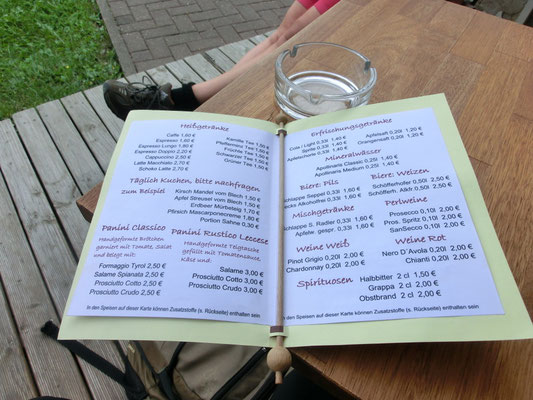 Heißgetränke
Caffe 1,60 €
Espresso 1,60 €
Espresso Lungo 1,80 €
Espresso Doppo 2,20 €
Cappuccino 2,50 €
Latte Macchiato 2,70 €
Schoko Latte 2,70 €
Kamille Tee 1,50 €
Pfefferminz Tee 1,50 €
Früchte Tee 1,50 €
Schwarzer Tee 1,50 €
Grüner Tee 1,50 €
Täglich Kuchen, bitte nachfragen
zum Beispiel
Kirsch Mandel vom Blech 1,50 €
Apfel Streusel vom Blech 1,50 €
Erdbeer Mürbeteig 1,70 €
Pfirsich Mascarponecreme 1,80 €
Portion Sahne 0,30 €
Panini Classico
Handgeformte Brötchen
garniert mit Tomate, Salat
und belegt mit:
Formaggio Tyrol 2,50 €
Salame Spianata 2,50 €
Prosciutto Cotto 2,50 €
Prosciutto Crudo 2,50 €
Panini Rustico Leccese
Handgeformte Teigtasche
gefüllt mit Tomatensauce,
Käse und:
Salame 3,00 €
Prosciutto Cotto 3,00 €
Prosciutto Crudo 3,00 €
In den Speisen auf dieser Karte können Zusatzstoffe (s. Rückseite) enthalten sein
Erfrischungsgetränke
Cola / Light 0,33l 1,40 €
Sprite 0,33l 1,40 €
Apfelschorle 0,33l 1,40 €
Apfelsaft 0,20l 1,20 €
Orangensaft 0,20l 1,20 €
Mineralwässer
Apollinaris Classic 0,25l 1,40 €
Apollinaris Medium 0,25l 1,40 €
Biere: Pils
Schlappe Seppel 0,33l 1,60 €
Becks Alkoholfrei 0,33l 1,60 €
Biere: Weizen
Schöfferhofer 0,50l 2,50 €
Schöfferh. Alkfr. 0,50l 2,50 €
Mischgetränke
Schlappe S. Radler 0,33l 1,60 €
Apfelw. gespr. 0,33l 1,60 €
Perlweine
Prosecco 0,10l 2,00 €
Pros. Spritz 0,10l 2,00 €
SanSecco 0,10l 2,00 €
Weine Weiß
Pinot Grigio 0,20l 2,00 €
Chardonnay 0,20l 2,00 €
Weine Rot
Nero D`Avola 0,20l 2,00 €
Chianti 0,20l 2,00 €
Spirituosen
Halbbitter 2 cl 1,50 €
Grappa 2 cl 2,00 €
Obstbrand 2 cl 2,00 €
In den Speisen auf dieser Karte können Zusatzstoffe (s. Rückseite) enthalten sein